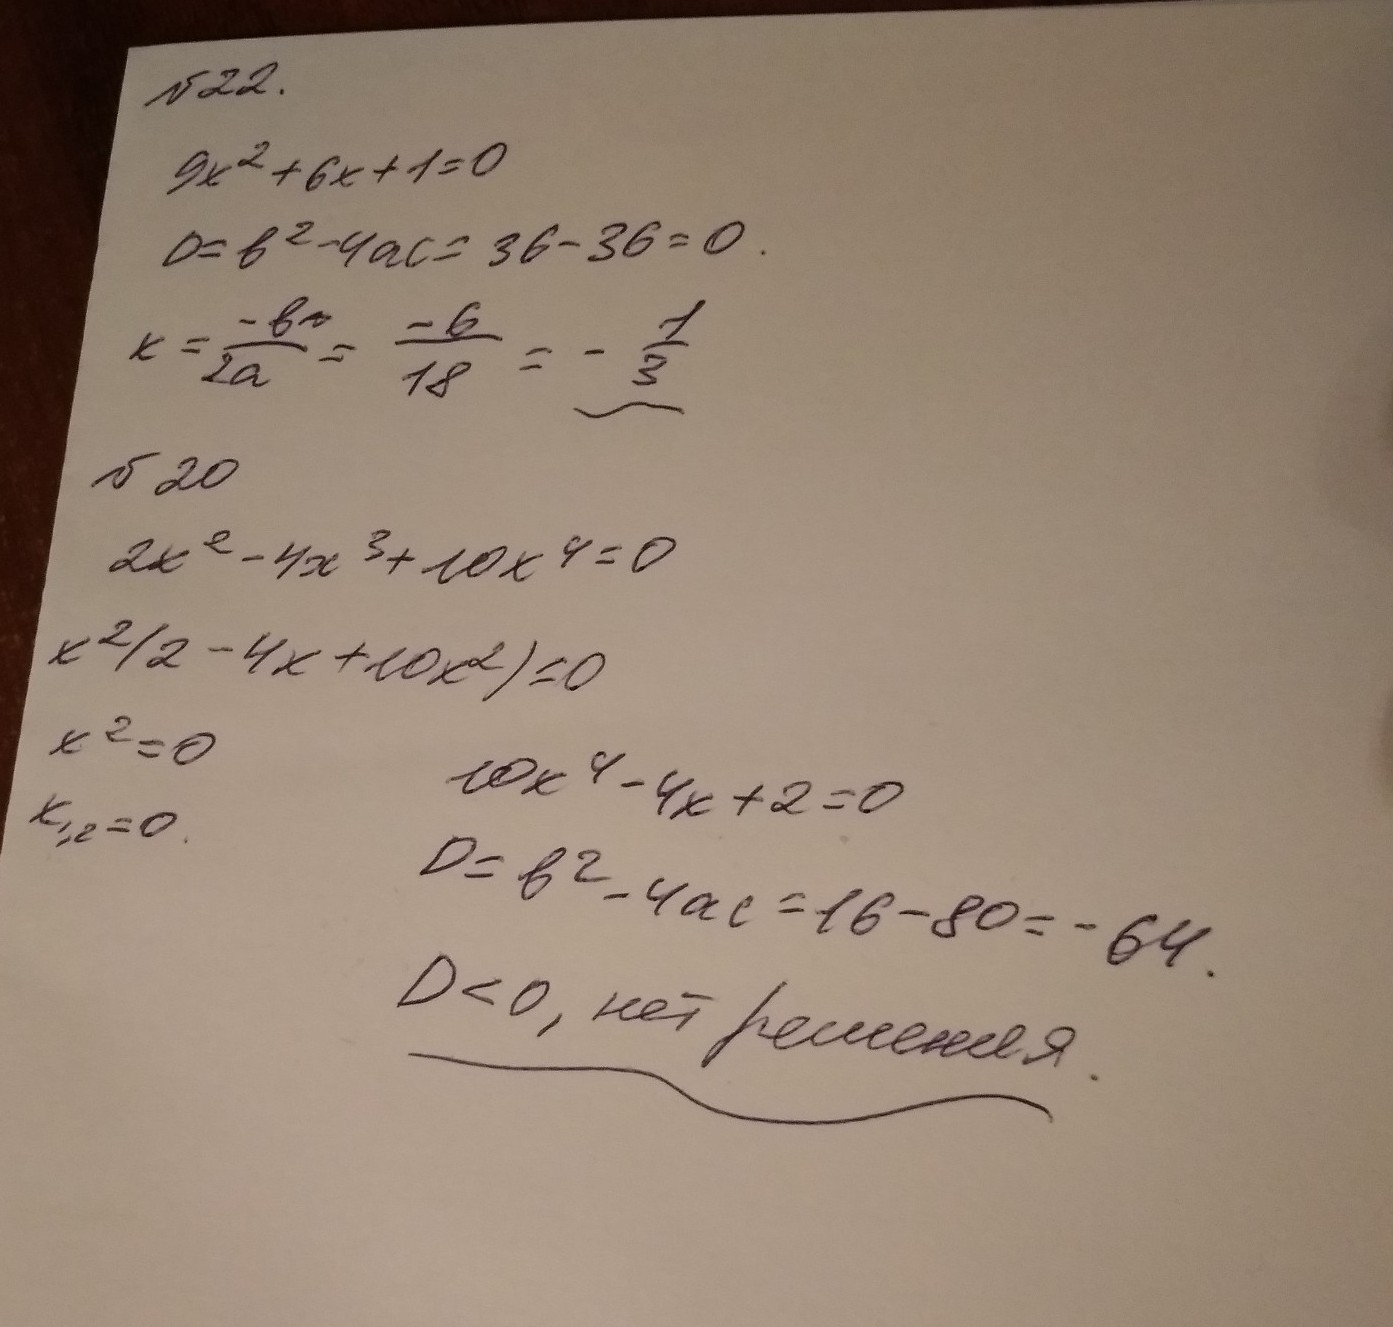 №22.
9x²+6x+1=0
D=b²-4ac=36-36=0.
x=-b/2a=-6/18=-1/3
№20
2x²-4x³+10x⁴=0
x²(2-4x+10x²)=0
x²=0
x₁,₂=0.
10x⁴-4x+2=0
D=b²-4ac=16-80=-64.
D<0, нет решения.